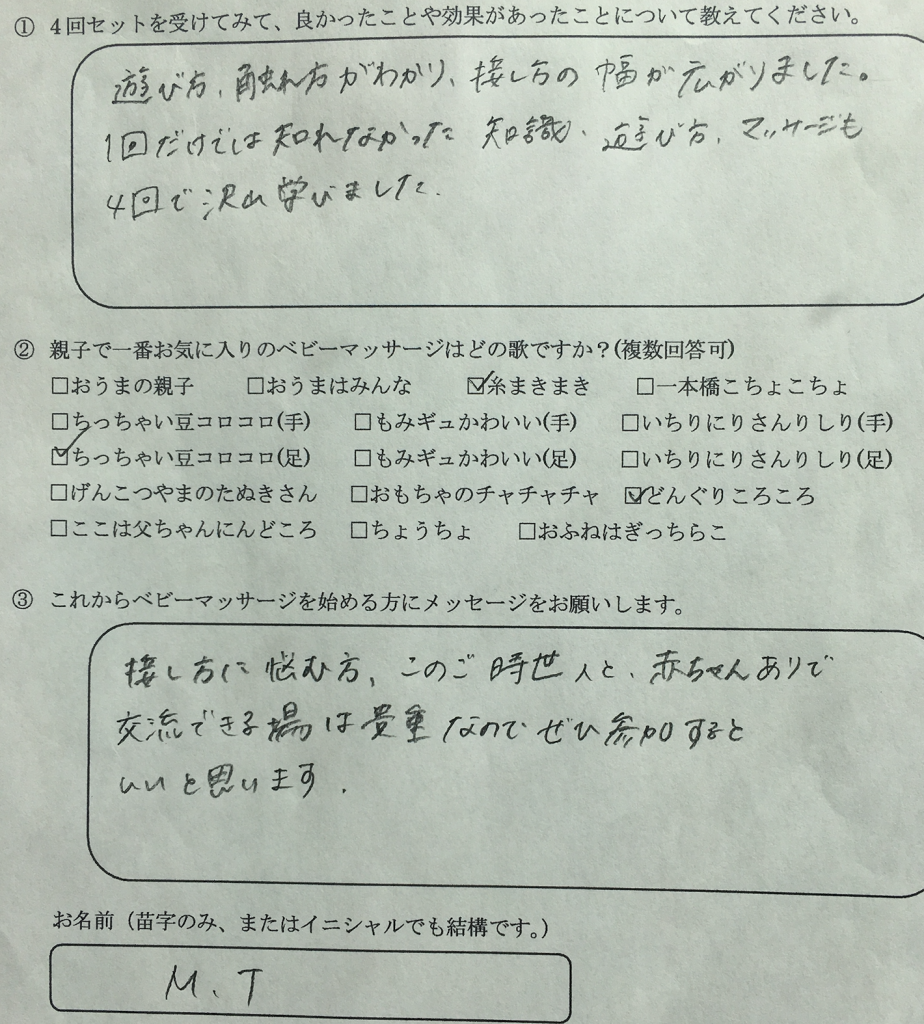 ① 4回セットを受けてみて、良かったことや効果があったことについて教えてください。
遊び方、触れ方がわかり、接し方の幅が広がりました。
1回だけでは知れなかった知識、遊び方、マッサージも
4回で沢山学びました。
② 親子で一番お気に入りのベビーマッサージはどの歌ですか？(複数回答可)
□おうまの親子 □おうまはみんな ☑糸まきまき □一本橋こちょこちょ
□ちっちゃい豆コロコロ(手) □もみギュかわいい(手) □いちりにりさんりしり(手)
☑ちっちゃい豆コロコロ(足) □もみギュかわいい(足) □いちりにりさんりしり(足)
□げんこつやまのたぬきさん □おもちゃのチャチャチャ ☑どんぐりころころ
□ここは父ちゃんにんどころ □ちょうちょ □おふねはぎっちらこ
③ これからベビーマッサージを始める方にメッセージをお願いします。
接し方に悩む方、このご時世人と、赤ちゃんありで
交流できる場は貴重なのでぜひ参加すると
いいと思います。
お名前（苗字のみ、またはイニシャルでも結構です。）
M.T